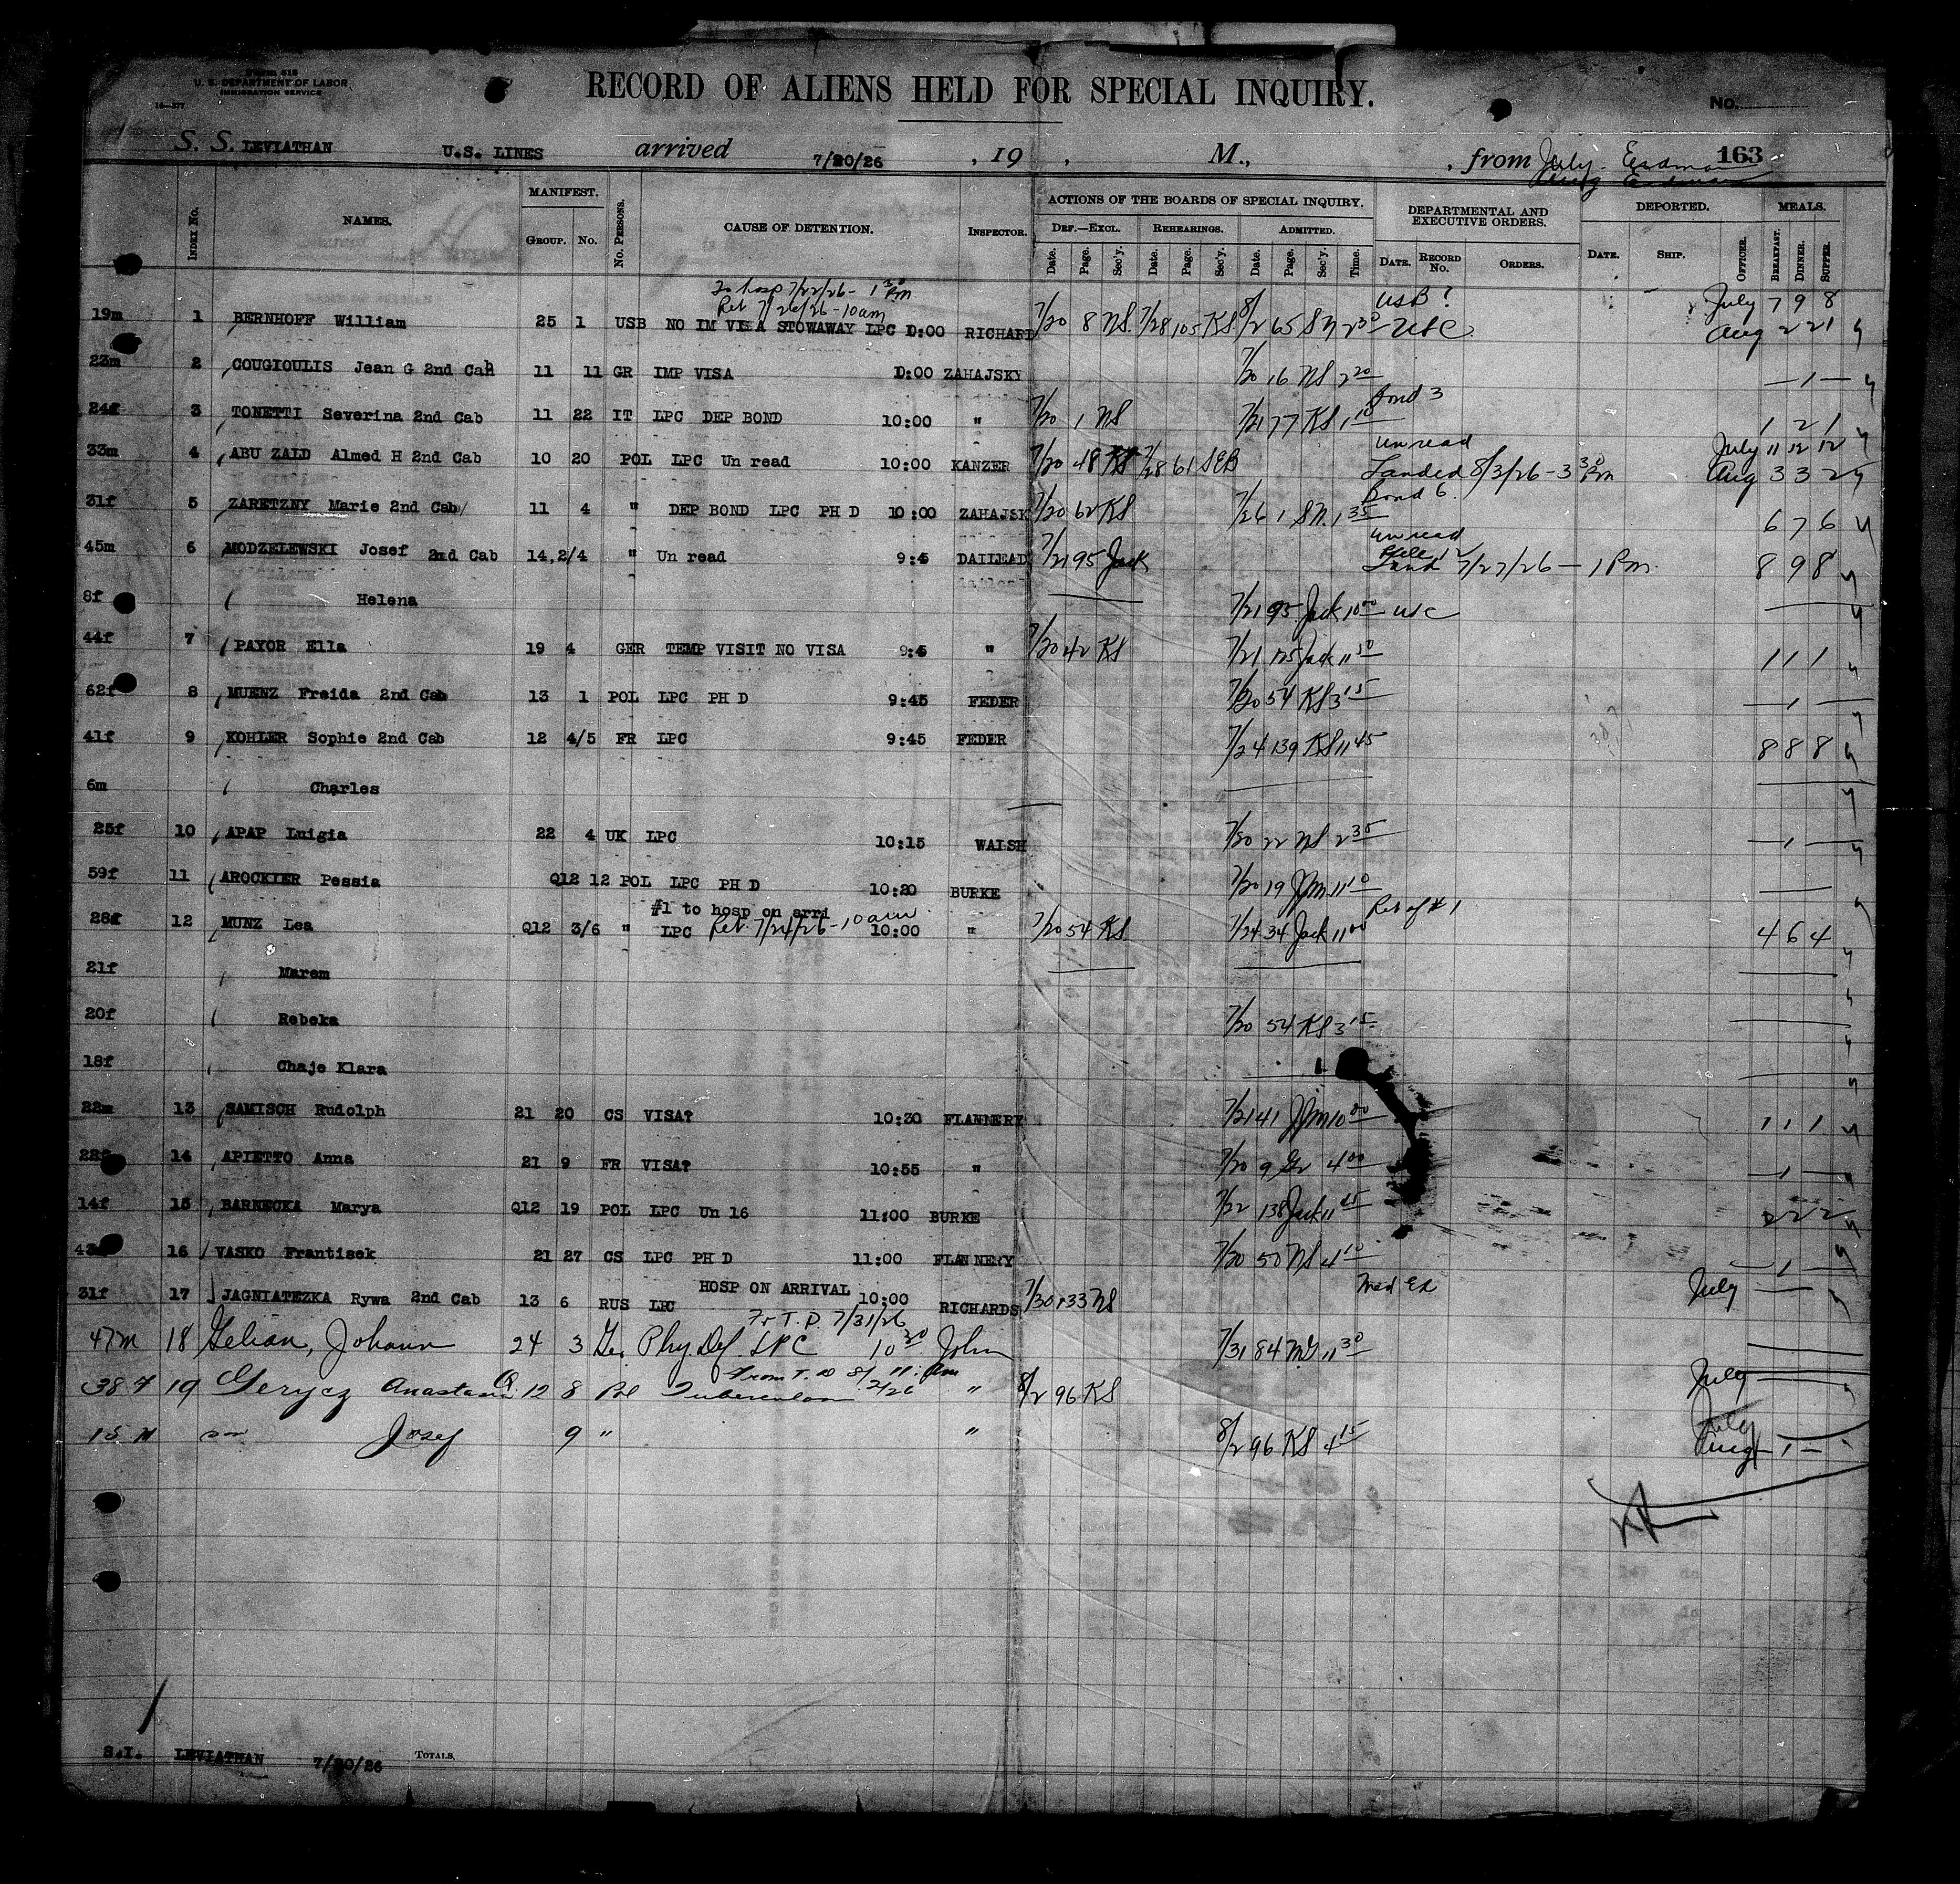 Form 618
U. S. DEPARTMENT OF LABOR
IMMIGRATION SERVICE
16—277
RECORD OF ALIENS HELD FOR SPECIAL INQUIRY.
No.
S. S. LEVIATHAN U.S. LINES arrived 7/20/26 , 19 , M., , from July Erdman 163
Aug Erdman
Index No. NAMES. MANIFEST. GROUP. No. No. PERSONS. CAUSE OF DETENTION. INSPECTOR. ACTIONS OF THE BOARDS OF SPECIAL INQUIRY. DEPARTMENTAL AND EXECUTIVE ORDERS. DEPORTED. MEALS.
DEF.—EXCL. REHEARINGS. ADMITTED.
Date. Page. Sec'y. Date. Page. Sec'y. Date. Page. Sec'y. Time. DATE. RECORD No. ORDERS. DATE. SHIP. OFFICER. BREAKFAST. DINNER. SUPPER.
To hosp 7/22/26 - 1 30 Pm
Ret 7/26/26 - 10 am USB ? July 7 9 8
19m 1 BERNHOFF William 25 1 USB NO IM VISA STOWAWAY LPC D:00 RICHARD 7/20 8 NS 7/28 105 KS 8/2 65 SN 2 30 USC Aug 2 2 1
23m 2 COUGIOULIS Jean G 2nd Cab 11 11 GR IMP VISA D:00 ZAHAJSKY 7/20 16 NS 2 20 — 1 —
Bond 3
24f 3 TONETTI Severina 2nd Cab 11 22 IT LPC DEP BOND 10:00 " 7/20 1 NS 7/21 77 KS 1 10 1 2 1
Unread July 11 12 12
33m 4 ABU ZALD Almed H 2nd Cab 10 20 POL LPC Un read 10:00 KANZER 7/20 48 KS 7/28 61 SEB Landed 8/3/26 - 3 30 Pm Aug 3 3 2
Bond 6
31f 5 ZARETZNY Marie 2nd Cab 11 4 " DEP BOND LPC PH D 10:00 ZAHAJSK 7/20 62 KS 7/26 1 SN 1 35 6 7 6
unread
45m 6 MODZELEWSKI Josef 2nd Cab 14,2/4 " Un read 9:45 DAILEAD 7/21 95 Jack Land 7/27/26 - 1 Pm 8 9 8
8f Helena 7/21 95 Jack 10 00 USC
44f 7 PAYOR Ella 19 4 GER TEMP VISIT NO VISA 9:45 " 7/20 42 KS 7/21 125 Jack 11 50 1 1 1
62f 8 MUENZ Freida 2nd Cab 13 1 POL LPC PH D 9:45 FEDER 7/20 54 KS 3 15 — 1 —
41f 9 KOHLER Sophie 2nd Cab 12 4/5 FR LPC 9:45 FEDER 7/24 139 KS 11 45 8 8 8
6m Charles
25f 10 APAP Luigia 22 4 UK LPC 10:15 WALSH 7/20 22 NS 2 35 — 1 —
59f 11 AROCKIER Pessia Q12 12 POL LPC PH D 10:20 BURKE 7/20 19 JJm 11 10
#1 to hosp on arri Ret of #1
28f 12 MUNZ Lea Q12 3/6 " LPC Ret. 7/24/26 - 10 am 10:00 " 7/20 54 KS 7/24 34 Jack 11 00 4 6 4
21f Marem
20f Rebeka 7/20 54 KS 3 15
18f Chaje Klara
22m 13 SAMISCH Rudolph 21 20 CS VISA? 10:30 FLANNERY 7/21 41 JJm 10 00 1 1 1
22f 14 APIETTO Anna 21 9 FR VISA? 10:55 " 7/20 9 Gr 4 00 — 1 —
14f 15 BARNECKA Marya Q12 19 POL LPC Un 16 11:00 BURKE 7/22 138 Jack 11 45 2 2 2
43m 16 VASKO Frantisek 21 27 CS LPC PH D 11:00 FLANNERY 7/20 50 NS 4 10 — 1 —
HOSP ON ARRIVAL Med Ex
31f 17 JAGNIATEZKA Rywa 2nd Cab 13 6 RUS LPC 10:00 RICHARDS 7/30 133 NS July
Fr T. D. 7/31/26
47m 18 Gelian, Johann 24 3 Ger Phy. Def. LPC 10 30 John 7/31 84 MG 11 30
From T. D 8/2/26 11: am
38 f 19 Gerycz Anastasia Q 12 8 Pol Tuberculosis " 8/2 96 KS July
15 M Josef 9 " " 8/2 96 KS 4 15 July
Aug — 1 —
S.I. LEVIATHAN 7/20/26 TOTALS.